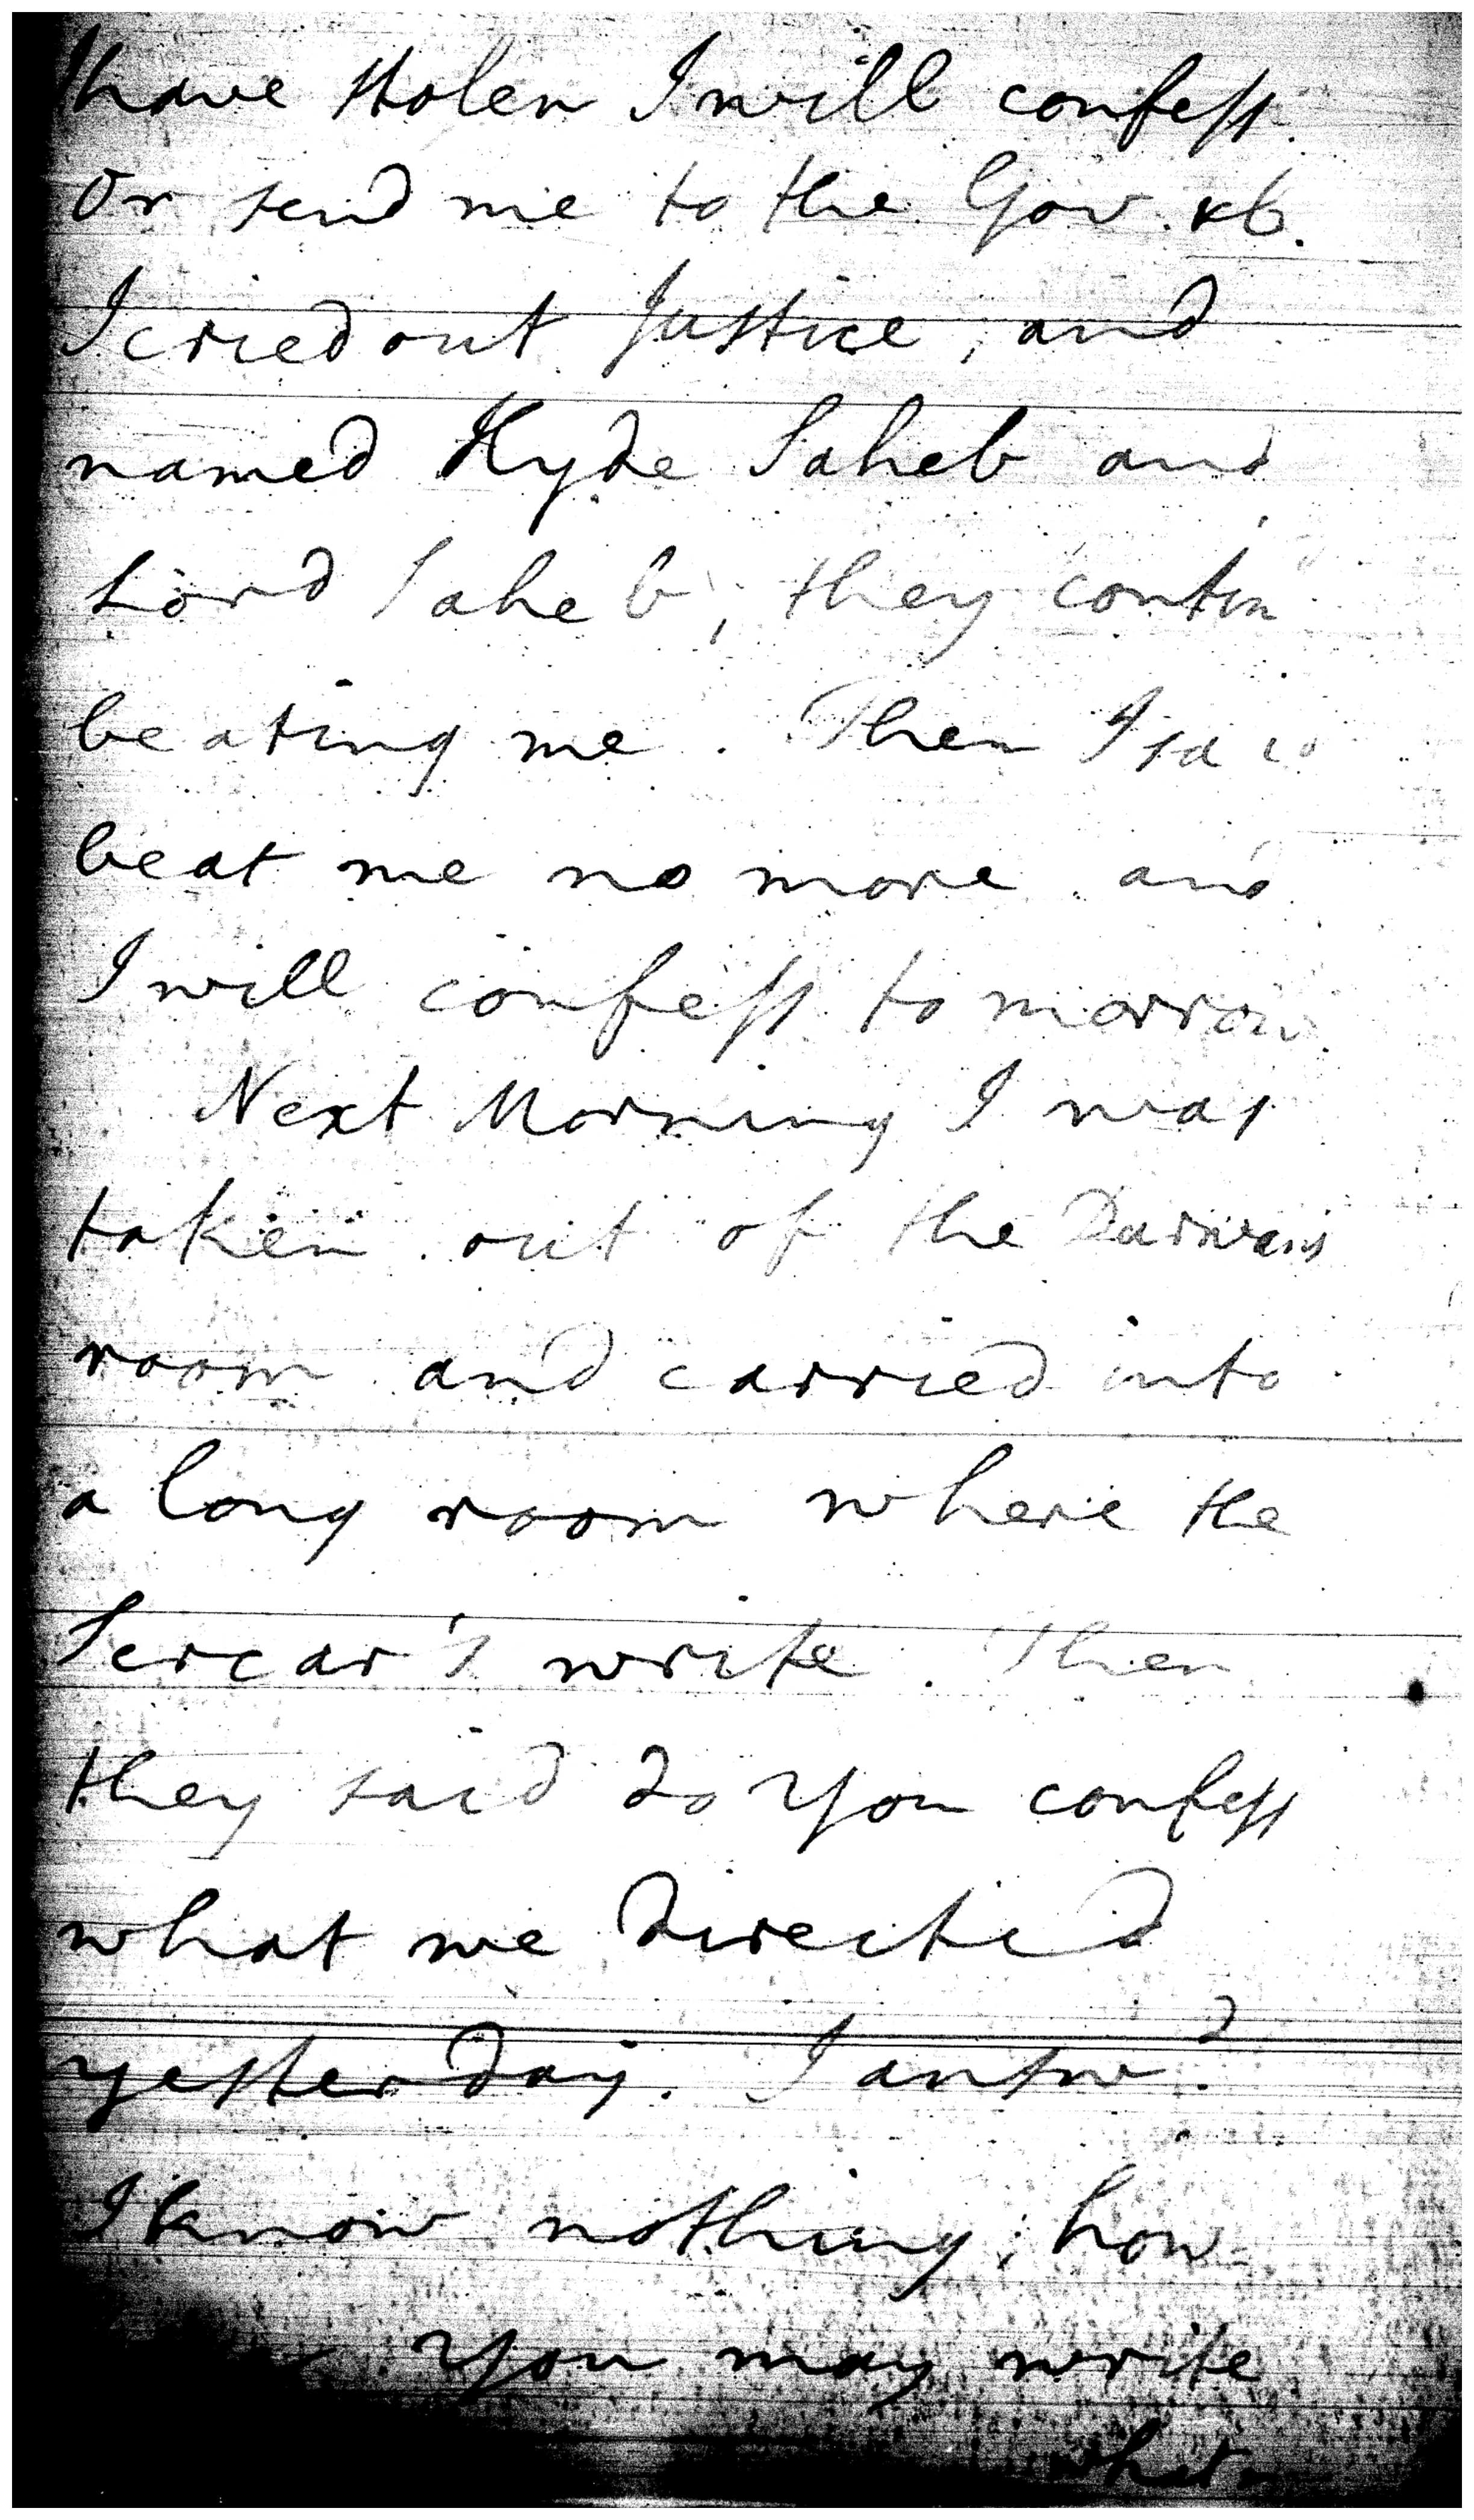 have stolen I will confess.
or send me to the Gov. &c.
I cried out Justice, and
named Hyde Saheb and
Lord Saheb; they contin
beating me. Then I said
beat me no more and
I will confess to morrow.
Next Morning I was
taken out of the Durwans
room and carried into
a long room where the
Sercar's write. Then
they said do you confess
what we directed
yesterday. I answd.
I know nothing; how
you may write
what